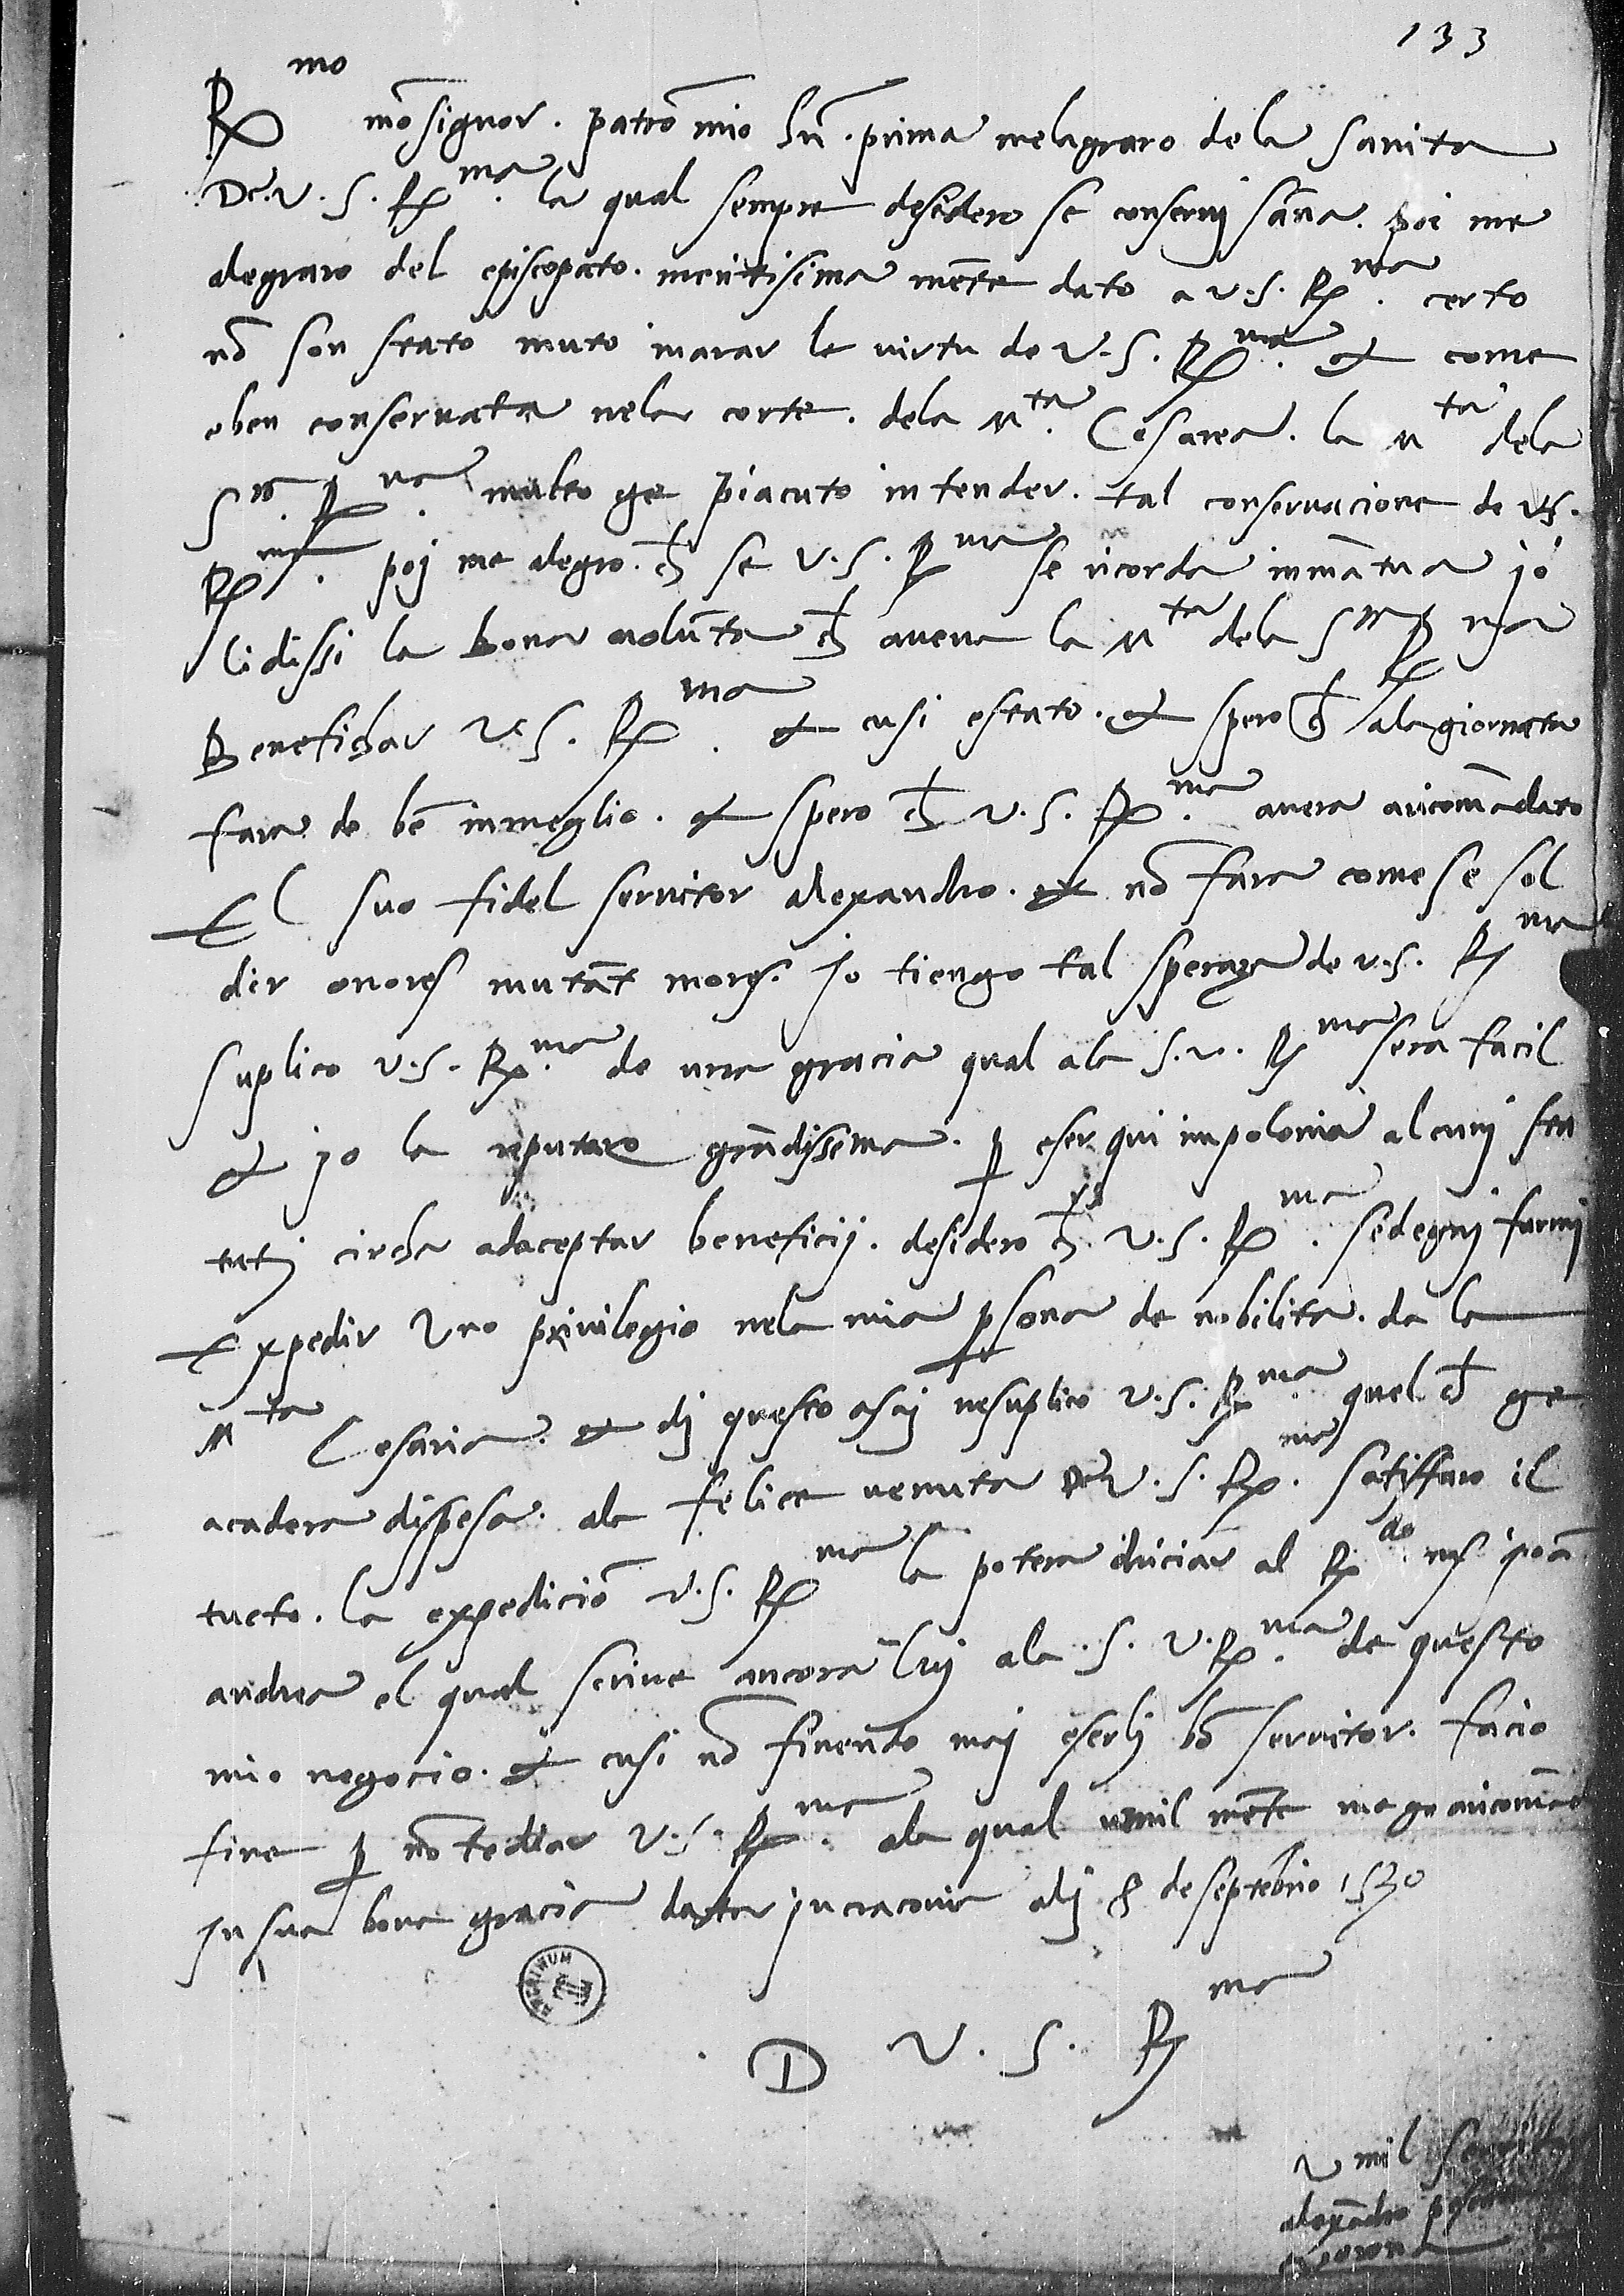 133
R.mo mōsignor. patrō mio sin̄. prima me lagraro de la sanita
De. v. s. R.ma. la qual sempre desidero se conservj sāna. poi me
alegraro del episcopato. meritisima mēte dato a v. s. R.ma. certo
nō son stato muto inarar le virtu de V. S. R.ma. et come
e ben conservata nela corte. dela M.ta. Cesarea. la M ta dela
S R ma. molto ge piacuto intender. tal conservacione de v s.
R.ma. poj me alegro. ch̄ se v. s. R ma se ricorda in mātua jo
li dissi la bona volūta ch̄ aveva la M ta dela S R ma
Benefichar V S. R ma. et cusi e stato. et spero ch̄ ala giornata
fara de bē in meglio. et spero ch̄ v. s. R.ma avera aricomādato
El suo fidel servitor alexandro. et nō fara come se sol
dir onores mutāt mores. Jo tiengo tal sperāza de v. s. R ma
suplico v. s. R.ma de una gracia qual ala S. v. R ma sera facil
et jo la reputaro grādissema. p eser qui in polonia alcunj sta
tutj circha ad aceptar beneficij. desidero ch̄. v. s. R ma. se degnj farmj
Expedir Uno privilegio nela mia psona de nobilita. da la
M ta Cesaria. et dj questo asaj ne suplico v. s. R ma. quel ch̄ ge
acadera dispesa. ala felice venuta de V. S. R.ma satisfaro il
tucto. la expediciō v. s. R ma la potera driciar al R do ms joā
andrea el qual scrive ancora luj ala. S. v. R.ma de questo
mio negocio. et cusi nō finendo maj eserlj bō servitor. facio
fine p nō tediar v. s. R ma. ala qual umil mēte me ge aricomād
In sua bona gracia data in cracovia adj 8 de septēbrio 1530
D V. S. R ma
Umil
alexādro